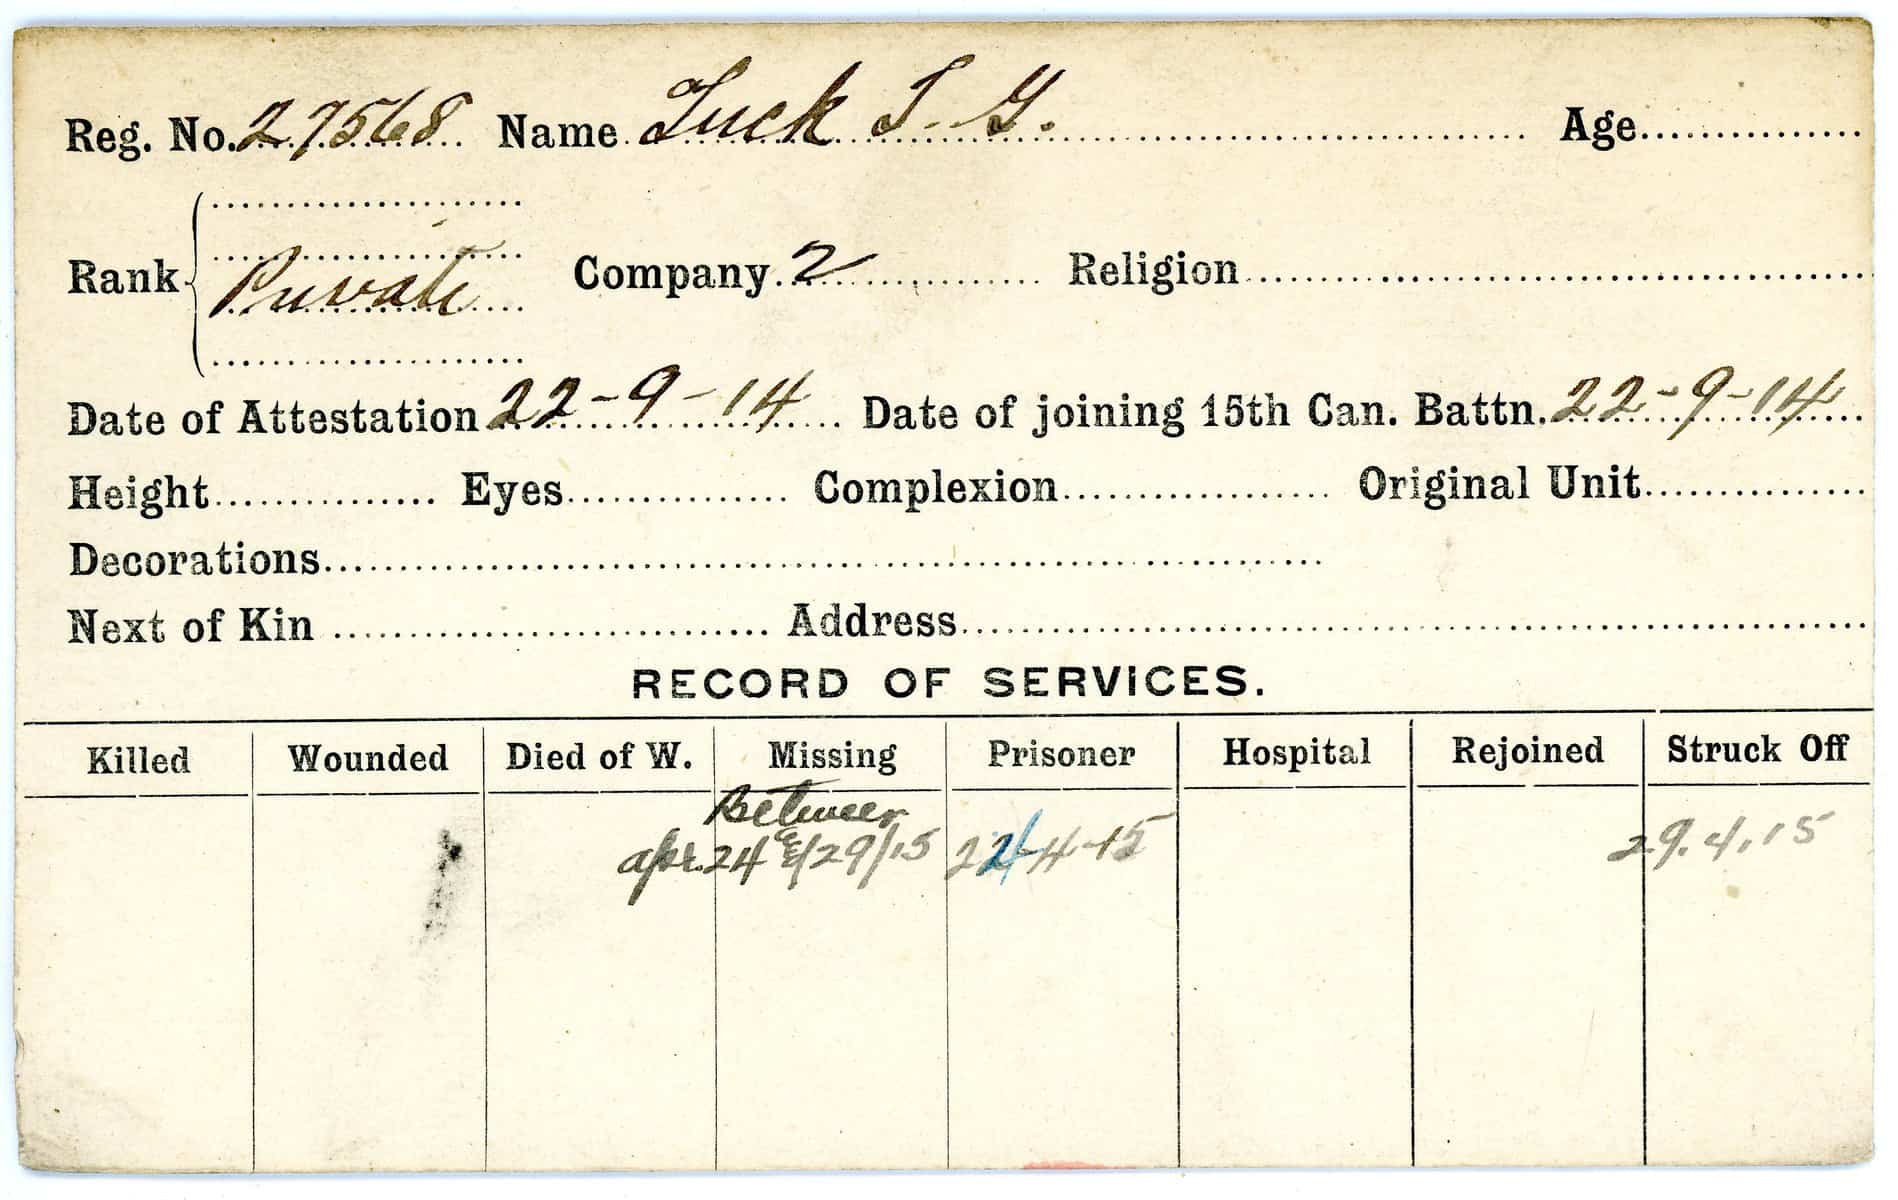 Reg. No. 27568 Name Tuck T. G. Age
Rank Private Company 2 Religion
Date of Attestation 22-9-14 Date of joining 15th Can. Battn. 22-9-14
Height Eyes Complexion Original Unit
Decorations
Next of Kin Address
RECORD OF SERVICES.
Killed Wounded Died of W. Missing Prisoner Hospital Rejoined Struck Off
Between
apr. 24 & 29/15 24-4-15 29.4.15